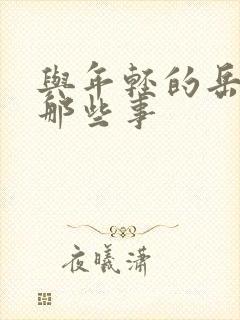 與年輕的岳
那些事
夜曦瀟